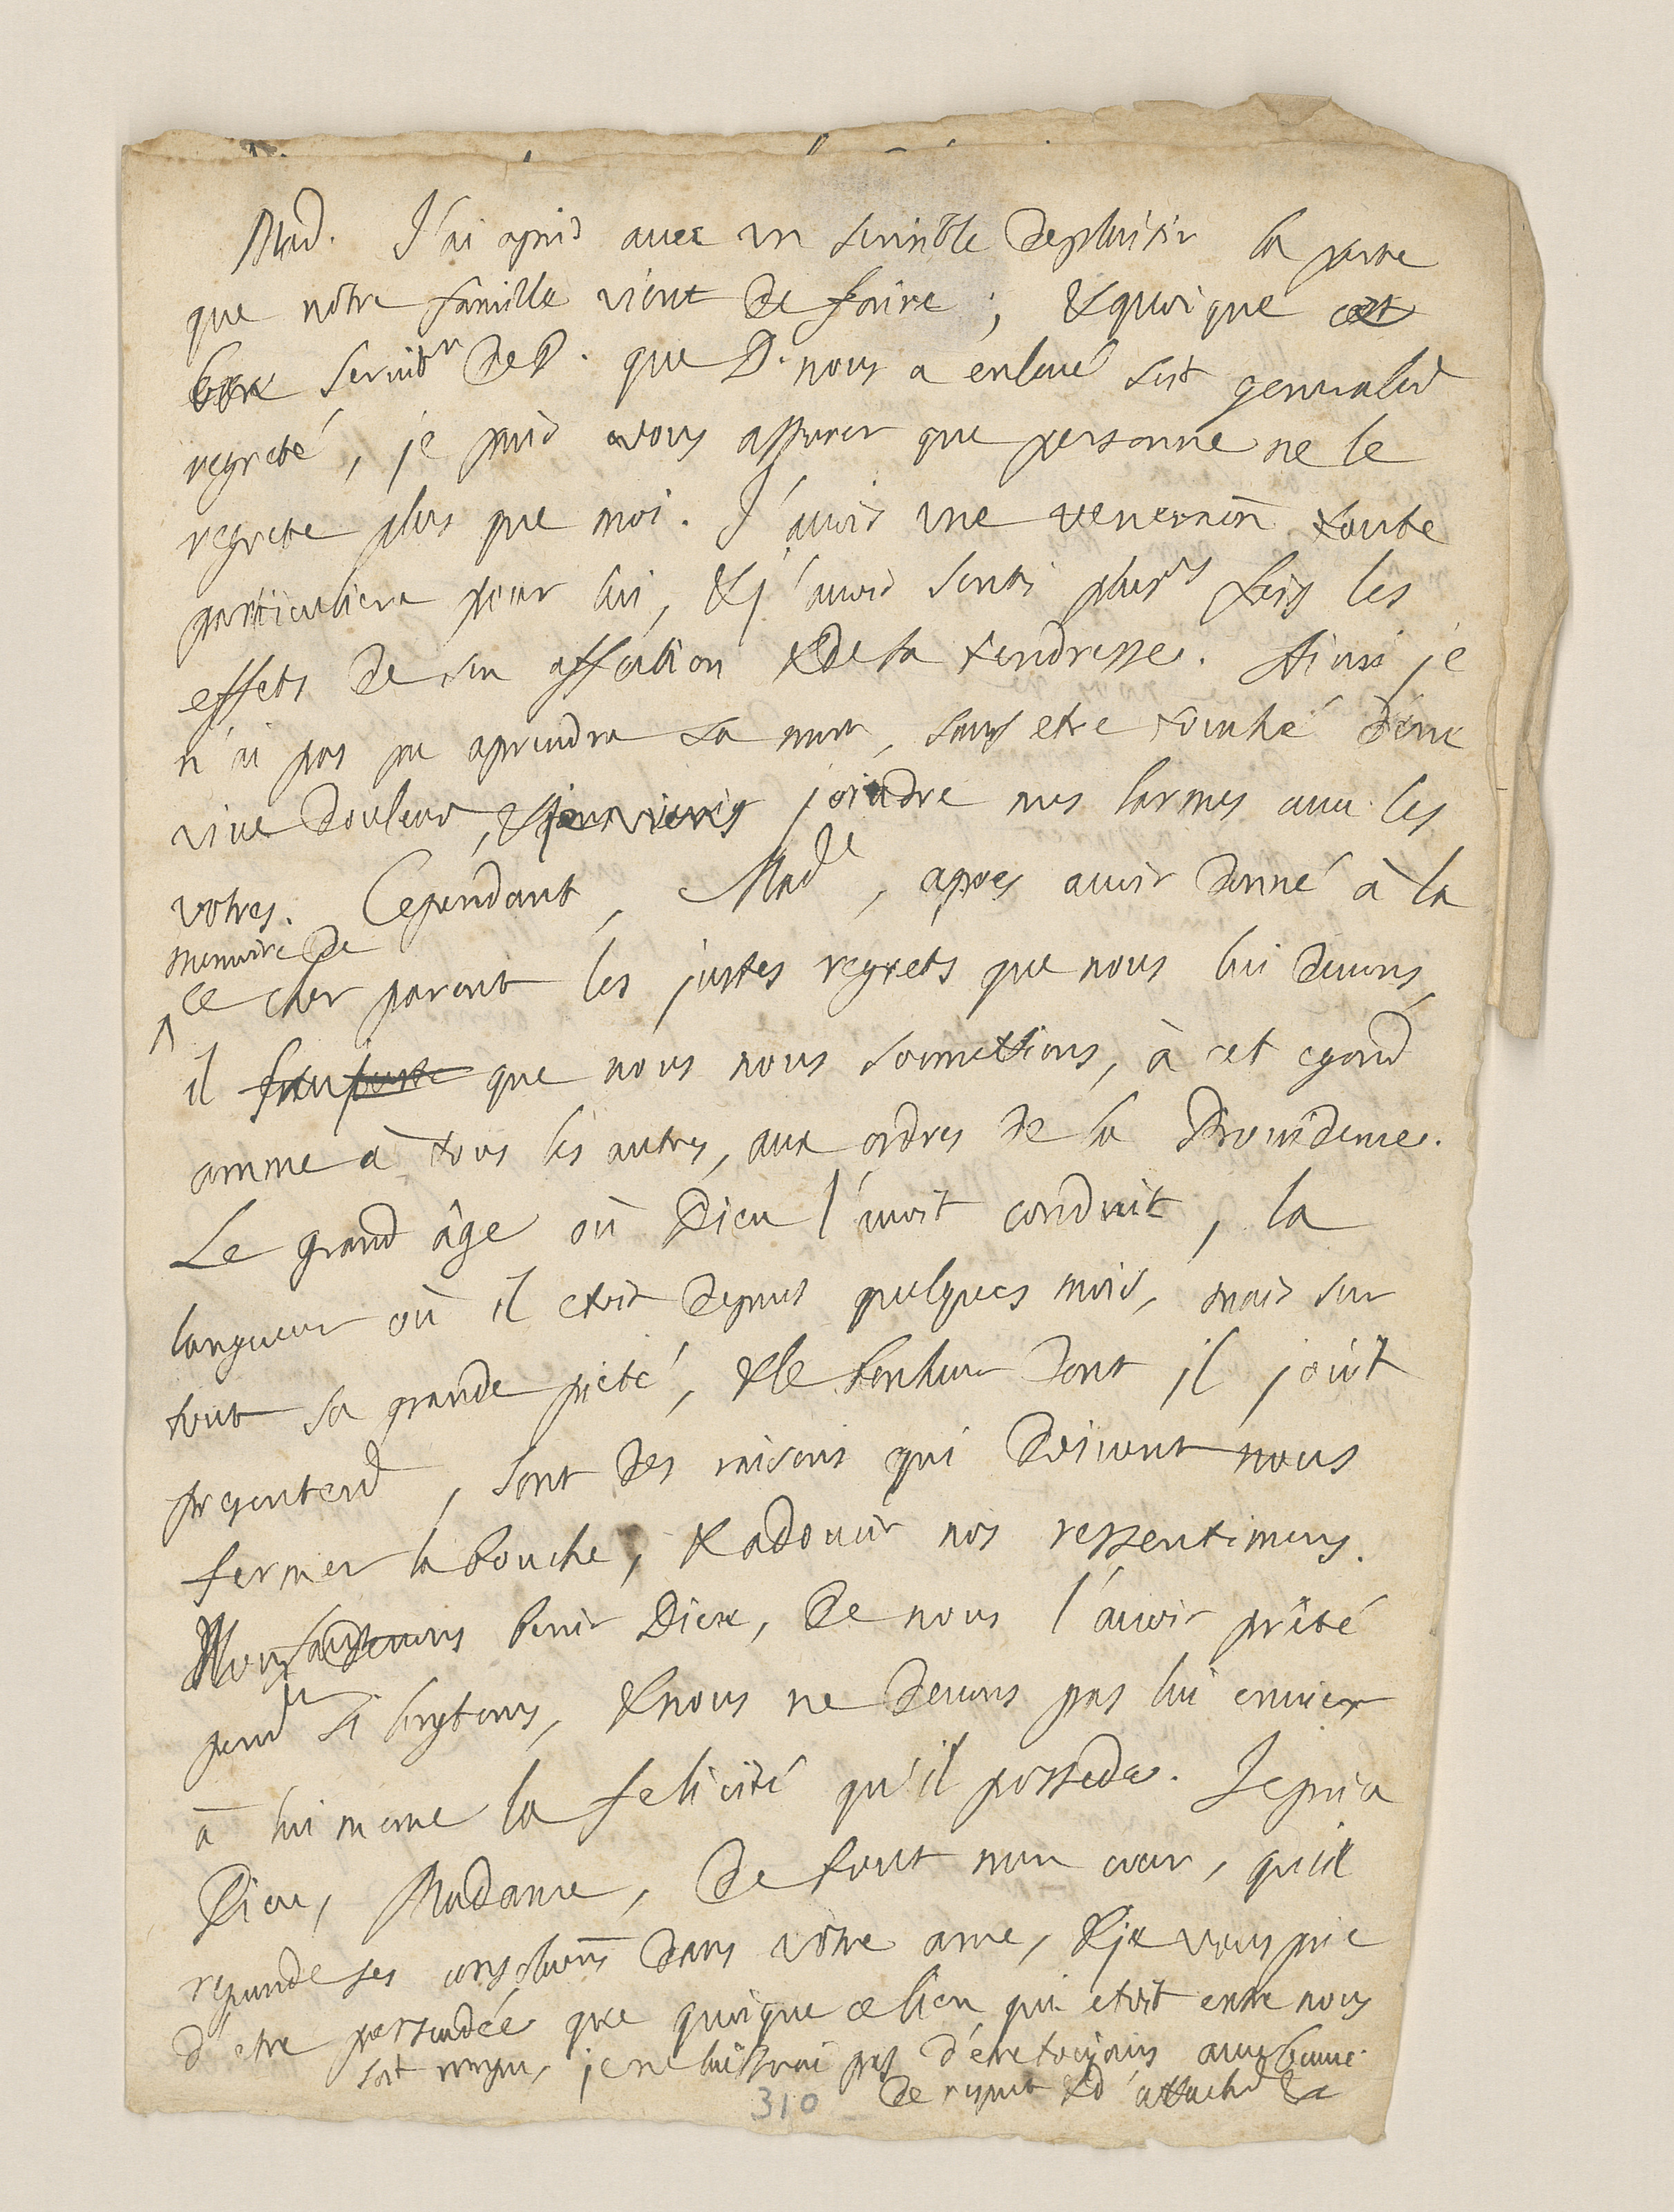 Mad. J'ai apris avec un sensible deplaisir la perte
que nôtre famille vient de faire ; & quoi que cet
bon servitr de D. que D. nous a enlevé soit generalert
regreté, je puis vous assurer que personne ne le
regrete plus que moi. J'avois une veneraōn toute
particuliere pour lui, & j'avois senti plusrs fois les
effets de son affection & de sa tendresse. Ainsi je
n'ai pas pu aprendre sa mort, sans etre touché d'une
vive douleur, & joindre mes larmes avec les
votres. Cependant, Made, apres avoir donné à la
memoire de
ce cher parent les justes regrets que nous lui devons,
il que nous nous soumettions, à cet egard
comme à tous les autres, aux ordres de la Providence.
Le grand âge où Dieu l'avoit conduit, la
langueur où il etoit depuis quelques mois, mais sur
tout sa grande pieté, & le bonheur dont il jouït
presentent, sont des raisons qui doivent nous
fermer la bouche, & adoucir nos ressentimens.
Nous devons benir Dieu, de nous l'avoir prêté
pendt si longtems, & nous ne devons pas lui envier
à lui meme la felicité qu'il possede. Je prie
Dieu, Madame, de tout mon coeur, qu'il
repande ses consolaōns dans vôtre ame, & je vous prie
d'etre persuadée que quoique ce lien qui etoit entre nous
soit rompu, je ne laisserai pas d'être toujours avec beauc.
de respect & d'attacht &c
310